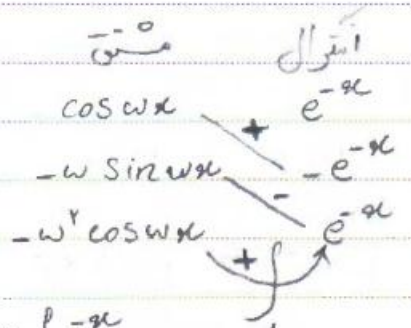 مشتق انتگرال
cos ωx + e^{-x}
-ω sin ωx - -e^{-x}
-ω² cos ωx + ∫ e^{-x}